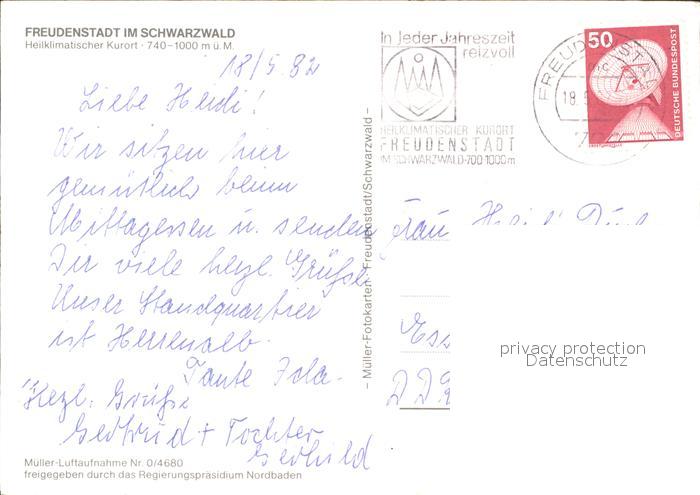 FREUDENSTADT IM SCHWARZWALD
Heilklimatischer Kurort · 740-1000 m ü. M.
18/5 82
Liebe Heidi!
Wir sitzen hier
gemütlich beim
Mittagessen u. senden
Dir viele herzl. Grüße
Unser Standquartier
ist Herrenalb.
Tante Ida.
Herzl. Grüße
Gertrud + Tochter
Gerhild
Müller-Luftaufnahme Nr. 0/4680
freigegeben durch das Regierungspräsidium Nordbaden
– Müller-Fotokarten · Freudenstadt/Schwarzwald –
In jeder Jahreszeit
reizvoll
HEILKLIMATISCHER KURORT
FREUDENSTADT
IM SCHWARZWALD·700-1000m
FREUDENSTA
18.5
50
DEUTSCHE BUNDESPOST
Frau
DD
privacy protection
Datenschutz